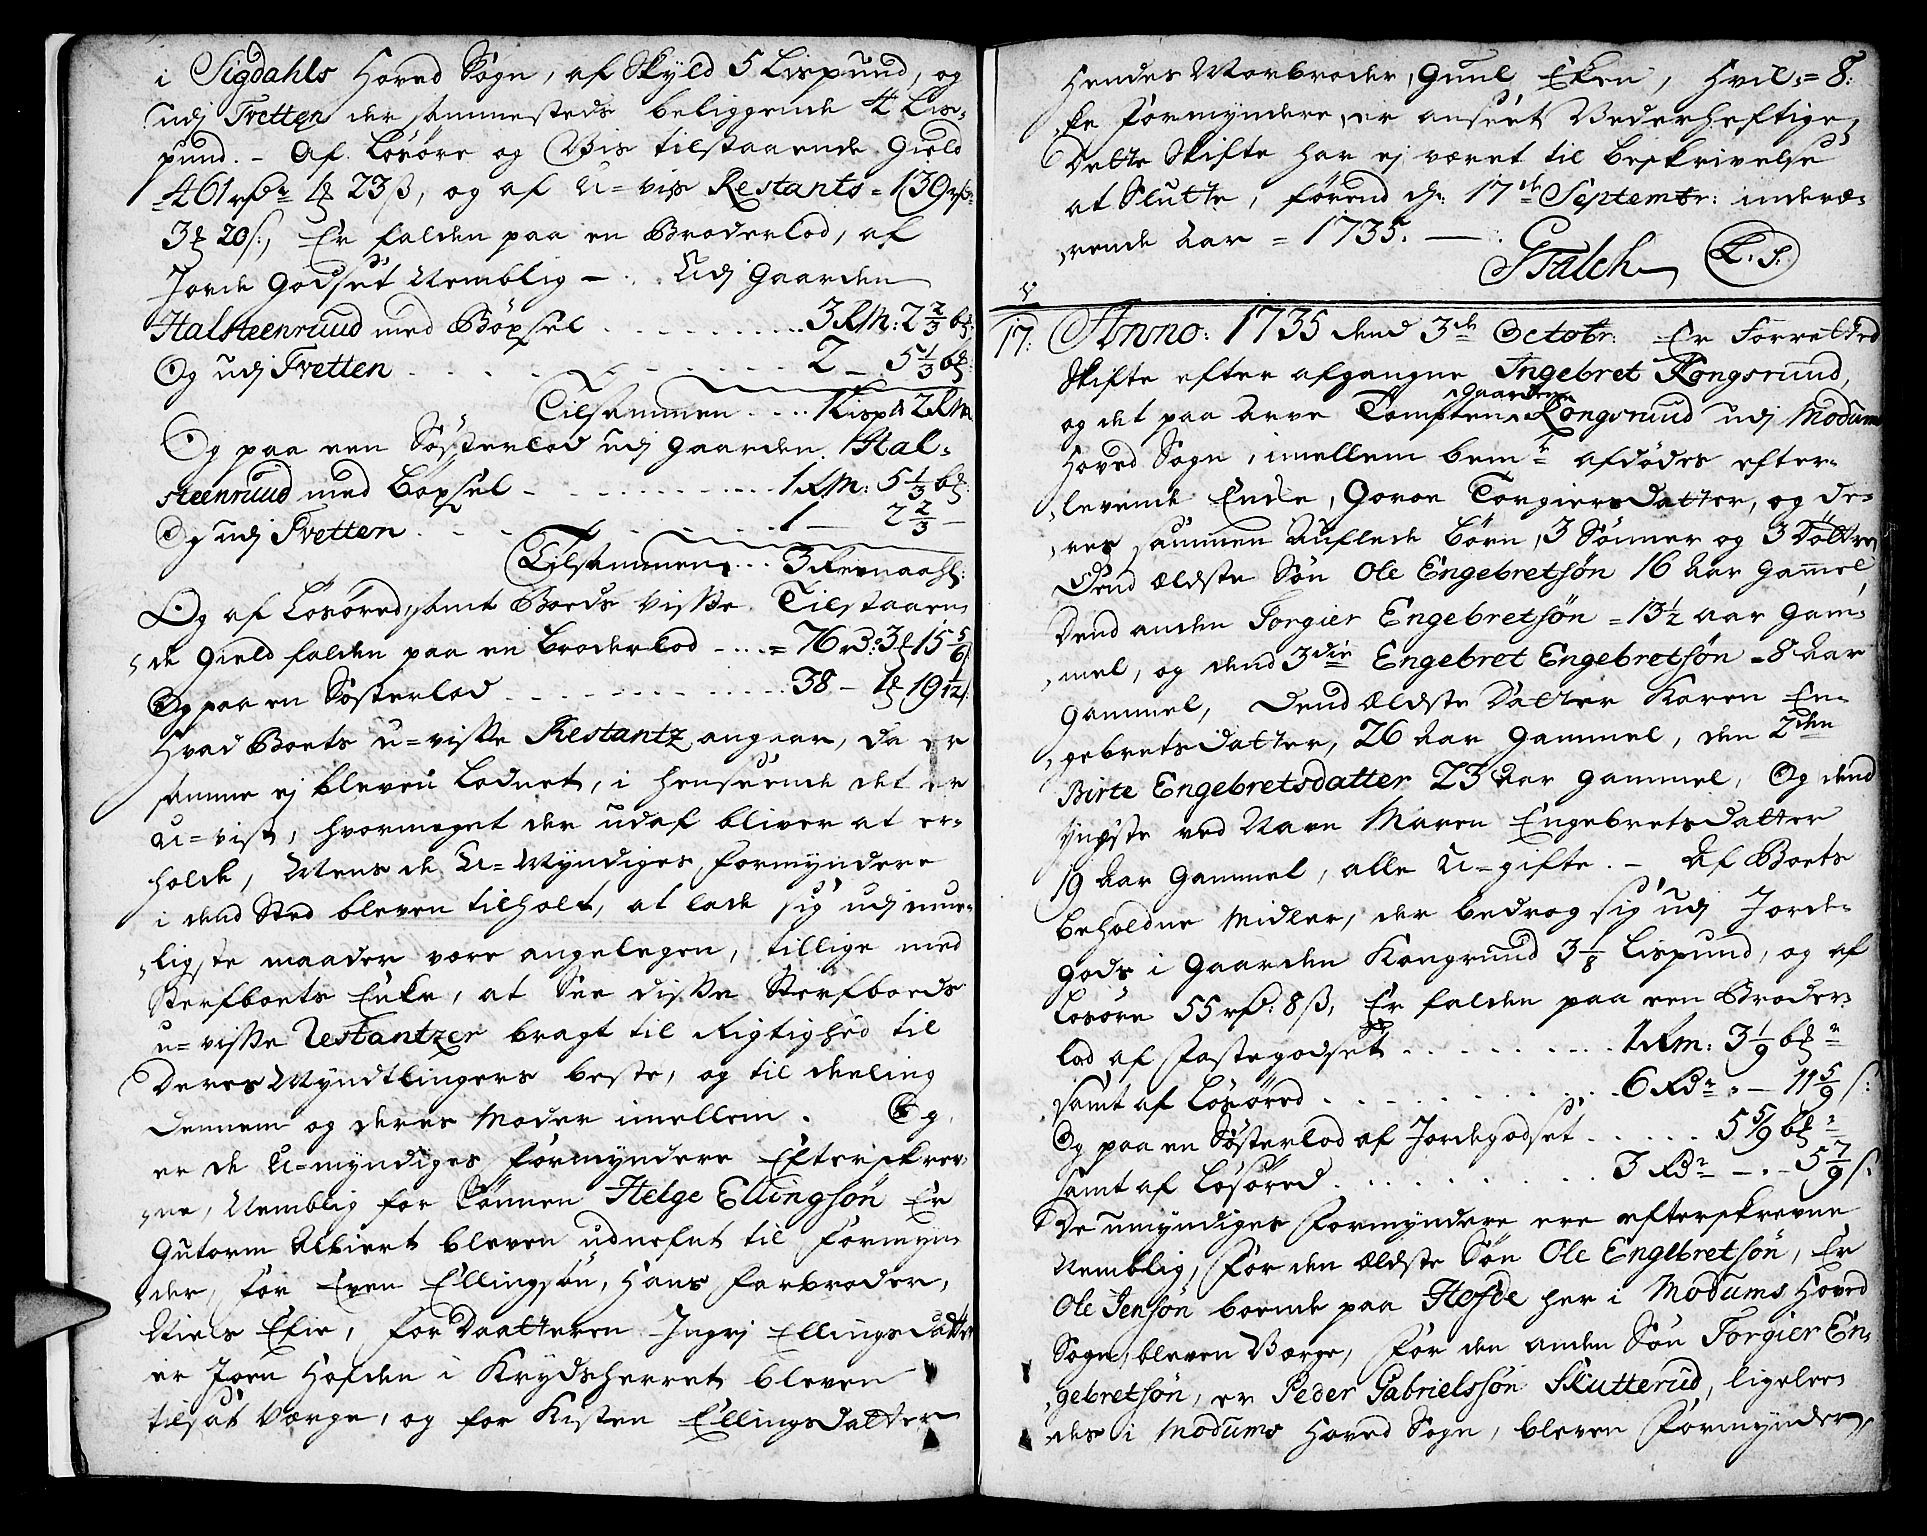 i Sigdahls Hoved Sogn, af Skyld 5 Lispund, og
udj Tvetten der sammesteds beliggende 4 Lis=
pund. - Af Løsøre og Vis tilstaaende Gield
=461 rdr 1 ort 23 ß, og af U=vis Restants = 139 rdr
3 ort 20 ß:, Er falden paa en Broderlod, af
Jorde Godset Nemblig - . Udj Gaarden
Halsteenruud med Böxsel . . . . . . . . . 3 RM: 2 2/3 bß:
Og udj Tvetten . . . . . . . . . . 2 - 5 1/3 bß:
Tilsammen . . . . 1 Lispd 2 RM
Og paa een Søsterlod udj Gaarden Hal=
steenruud med Böxsel - . . . . . . . . . 1 RM: 5 1/3 bß:
Og udj Tvetten . . . . . . . . . . 1 - 2 2/3 -
Tilsammen . . . 3 Remaahl:
Og af Løsøred, samt Boeds Visse Tilstaaen=
de Gield falden paa en Broderlod - . . . = 76 rd: 3 ort 15 5/6 ß
Og paa en Søsterlod . . . . . . . . . . 38 - 1 ort 19 11/12 ß:
Hvad Boets U=visse Restantz angaar, da er
samme ej bleven Lodnet, i henseende det er
U=vist, hvormeget der udaf bliver at er=
holde, Mens de U=Myndiges Formyndere
i dend Sted bleven tilholt, at lade sig udj muu=
ligste maader være angelegen, tillige med
Sterfboets Enke, at See disse Sterfboeds
u=visse Restantzer bragt til Rigtighed til
Deres Myndtlingers beste, og til deeling
Dennem og deres Moder imellem. Og
er de U=myndiges Formyndere Efterskrev=
ne, Nemblig for Sönnen Helge Ellingsøn Er
Gutorm Albiert bleven udnefnt til Formyn=
der, for Even Ellingsøn, Hans Farbroder,
Niels Efie, for Daatteren Ingrj Ellingsdatter
er Joen Hofden i Krydsherret bleven
tilsat Værge, og for Kisten Ellingsdatter
Hendes Morbroder, Guul Eken, Hvil= 8:
ke Formyndere er anseet Vederheftige,
Dette Skifte har ej været til beskrivelse
at Slutte, førend d: 17de Septembr: indevæ=
rende Aar = 1735. -
GFalch L. S.
17: Anno: 1735 dend 3de Octobr: Er Forretted
Skifte efter afgangne Ingebret Kongsruud,
og det paa Arve Tomften Gaarden Kongsruud udj Modums
Hoved Sogn, imellem bemte afdødes efter=
levende Enke, Goroe Torgiersdatter, og de=
res sammen Auflede Børn, 3 Sönner og 3 Döttre
Dend ældste Søn Ole Engebretsøn 16 Aar Gammel,
Dend anden Torgier Engebretsøn = 13 1/2 Aar Gam=
mel, og dend 3die Engebret Engebretsøn = 8 Aar
Gammel, Dend ældste Datter Karen En=
gebretsdatter, 26 Aar Gammel, den 2den
Birte Engebretsdatter 23 Aar Gammel, Og dend
yngste ved Navn Maren Engebretsdatter
19 Aar Gammel, alle U=gifte. - Af Boets
beholdne Midler, der bedrog sig udj Jorde=
gods i Gaarden Kongruud 3 1/8 Lispund, og af
Løsøre 55 rdr: 8 ß, Er falden paa een Broder=
lod af Jorde godset . . . . . . . . 1 Rm: 3 1/9 bßr
samt af Løsøred . . . . . . . . . . 6 Rdr - 11 5/9 ß:
Og paa en Søsterlod af Jordegodset . . . . . 5 5/9 bßr
samt af Løsøred . . . . . . . . . . 3 Rdr - . - 5 7/9 ß:
De umyndiges Formyndere ere efterskrevne
Nemblig, For den ældste Søn Ole Engebretsøn, Er
Ole Jensøn boende paa Hofde her i Modums Hoved
Sogn, bleven Værge, For den anden Søn Torgier En=
gebretsøn, er Peder Gabrielssøn Skutterud, ligelee=
des i Modums Hoved Sogn, bleven Formynder,